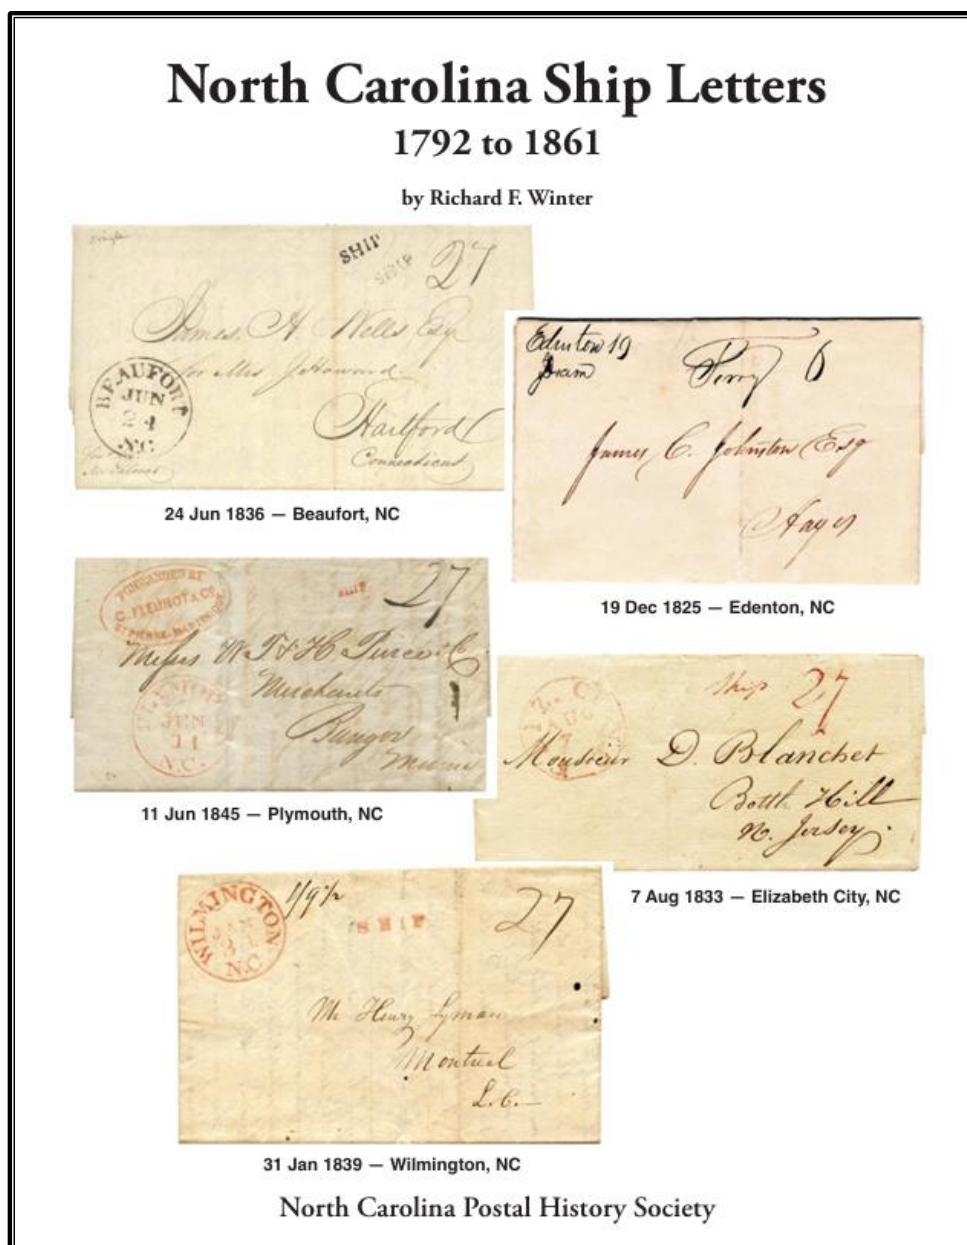 North Carolina Ship Letters
1792 to 1861
by Richard F. Winter
SHIP
SHIP
27
James A. Wells Esq
for Mrs J Howard
Hartford
Connecticut
BEAUFORT
JUN
24
N.C.
24 Jun 1836 — Beaufort, NC
Edenton 19
6
James C. Johnston Esq
Hayes
19 Dec 1825 — Edenton, NC
FORWARDED BY
C. FLEURIOT & CO
ST PIERRE-MARTINIQUE
SHIP
27
Messrs W T & H Pierce & Co
Merchants
Bangor
Maine
JUN
11
N.C.
11 Jun 1845 — Plymouth, NC
Ship 27
AUG
7
Monsieur D. Blanchet
Bottle Hill
N. Jersey
7 Aug 1833 — Elizabeth City, NC
WILMINGTON
N.C
1/9 1/2
SHIP
27
Mr Henry Lyman
Montreal
L.C.
31 Jan 1839 — Wilmington, NC
North Carolina Postal History Society